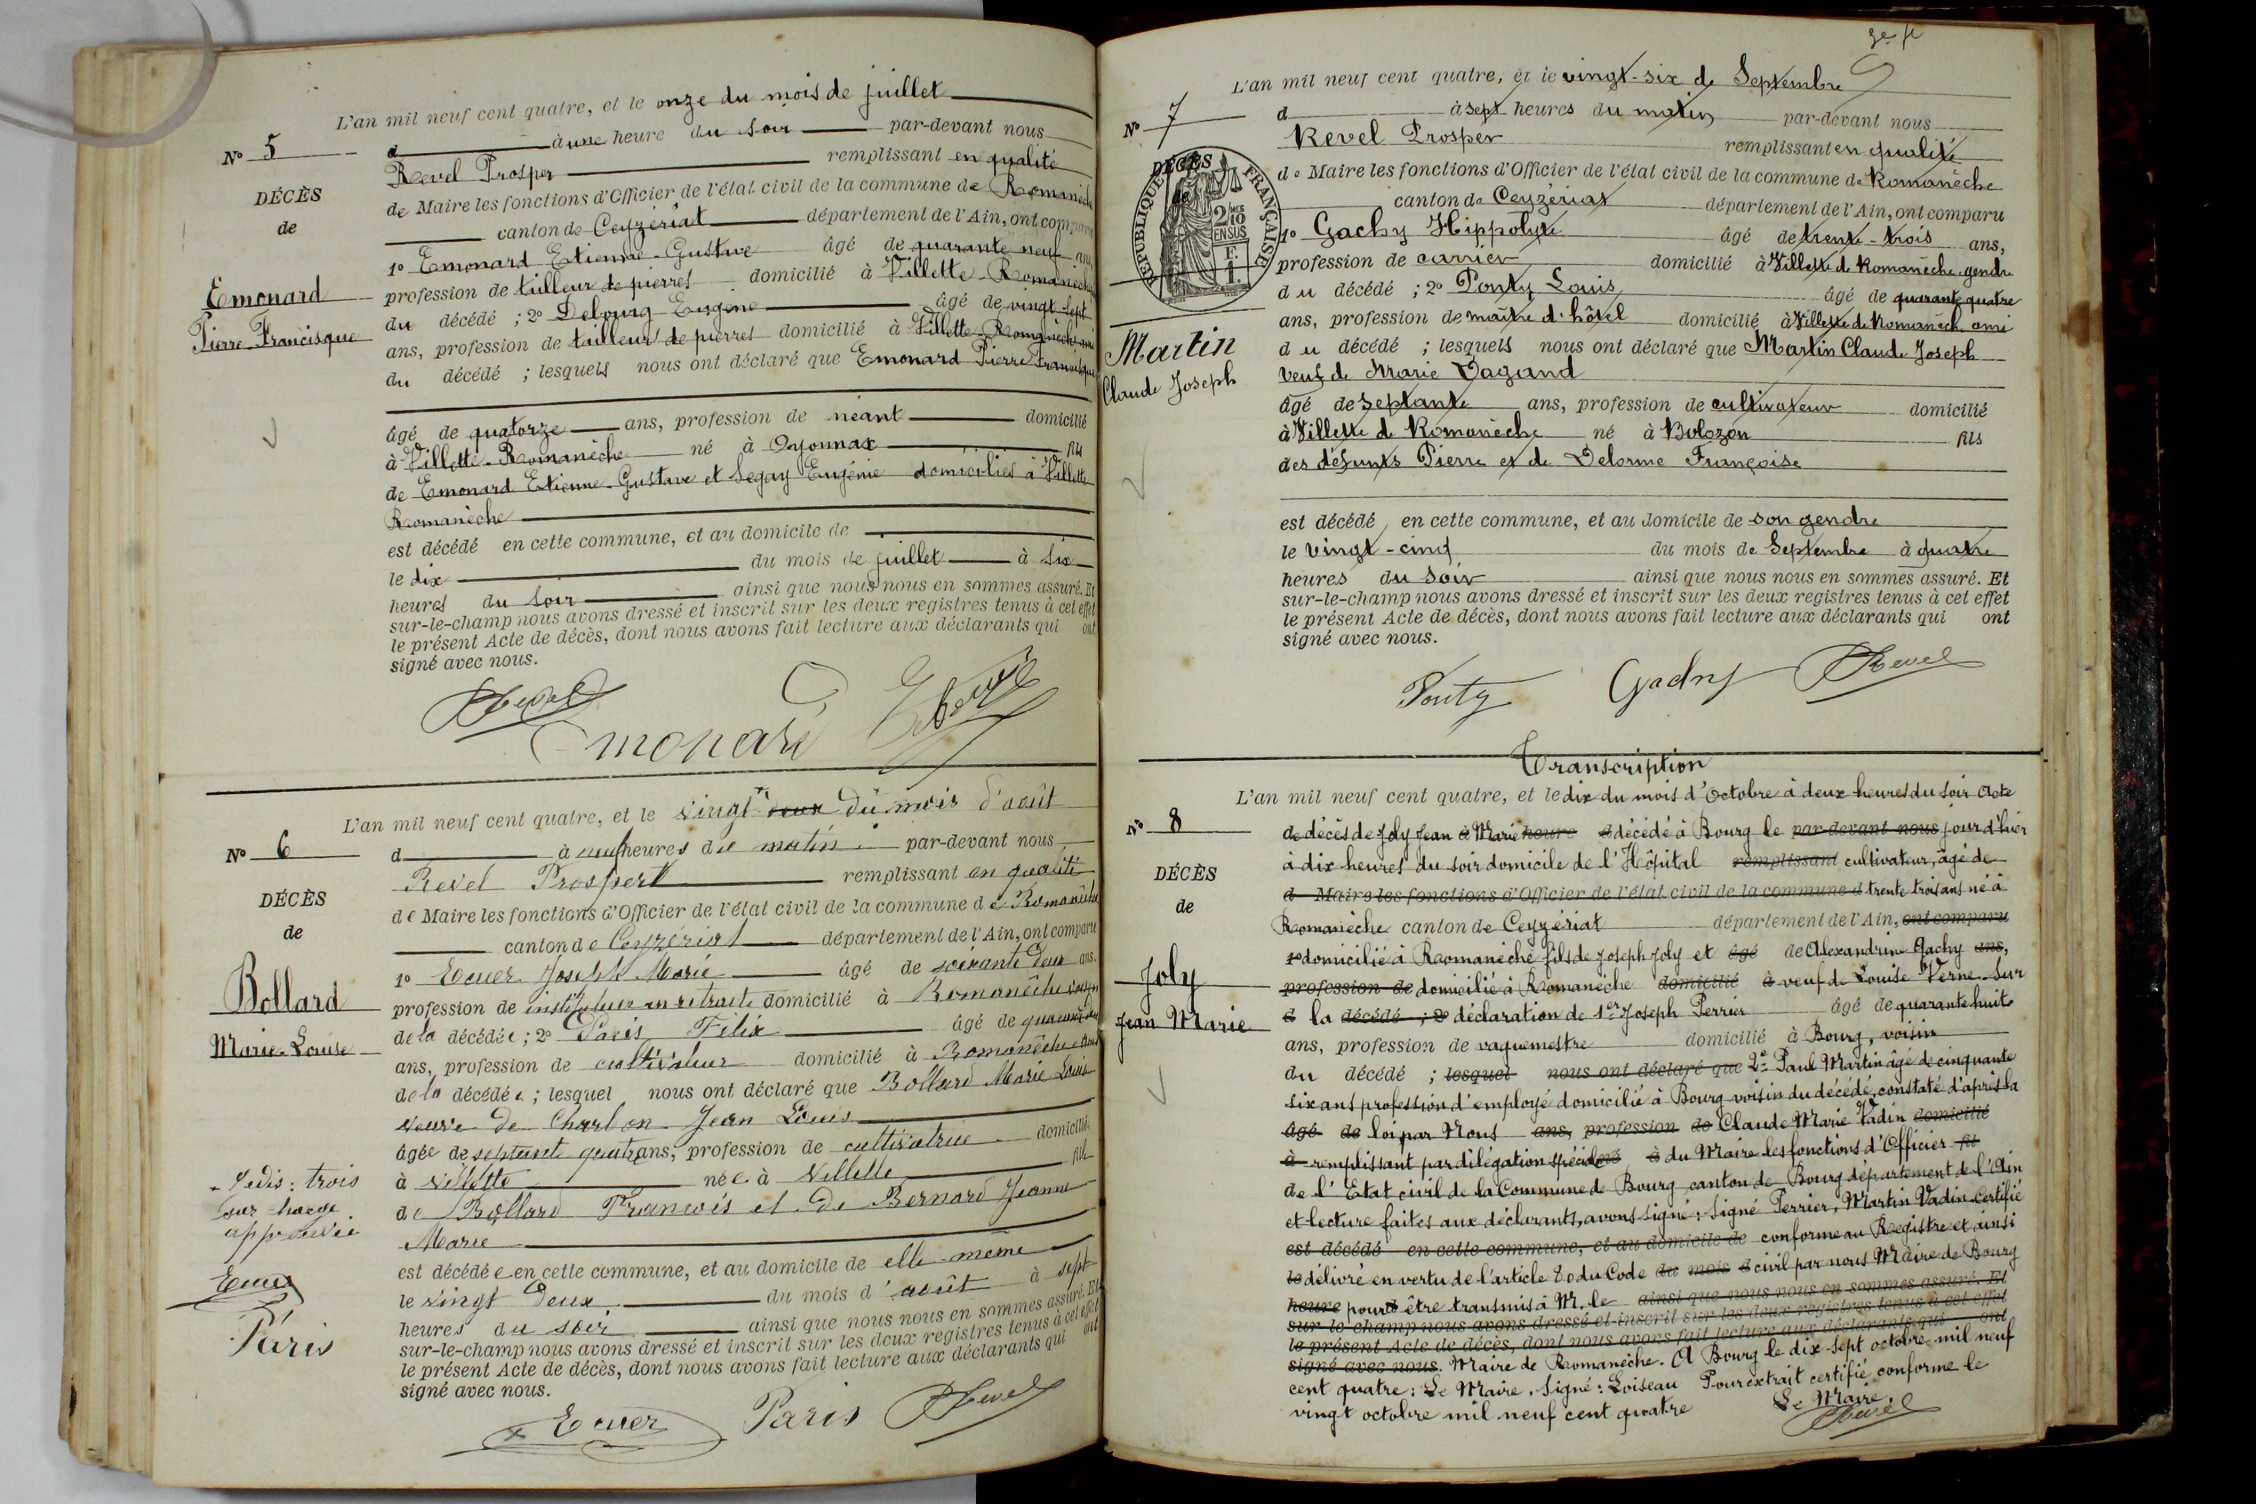 L'an mil neuf cent quatre, et le onze du mois de juillet
No 5
d à une heure du soir par-devant nous
Revel Prosper remplissant en qualité
DÉCÈS
de
de Maire les fonctions d'Officier de l'état civil de la commune de Romanèche
canton de Ceyzériat département de l'Ain, ont comparu
1o Emonard Etienne-Gustave âgé de quarante neuf ans
Emonard
Pierre-Francisque
profession de tailleur de pierres domicilié à Villette-Romanèche
du décédé ; 2o Debourg Eugène âgé de vingt-sept
ans, profession de tailleur de pierres domicilié à Villette-Romanèche
du décédé ; lesquels nous ont déclaré que Emonard Pierre Francisque
âgé de quatorze ans, profession de néant domicilié
à Villette-Romanèche né à Oyonnax fils
de Emonard Etienne-Gustave et Segay Eugénie domiciliés à Villette
Romanèche
est décédé en cette commune, et au domicile de
le dix du mois de juillet à six
heures du soir ainsi que nous nous en sommes assuré. Et
sur-le-champ nous avons dressé et inscrit sur les deux registres tenus à cet effet
le présent Acte de décès, dont nous avons fait lecture aux déclarants qui ont
signé avec nous.
Revel
Emonard
L'an mil neuf cent quatre, et le vingt du mois d'août
No 6
d à neuf heures du matin par-devant nous
Revel Prosper remplissant en qualité
DÉCÈS
de
de Maire les fonctions d'Officier de l'état civil de la commune de Romanèche
canton de Ceyzériat département de l'Ain, ont comparu
1o Ecuer Joseph Marie âgé de soixante deux ans.
Bollard
Marie-Louise
profession de instituteur en retraite domicilié à Romanèche
de la décédée ; 2o Paris Félix âgé de
ans, profession de cultivateur domicilié à Romanèche
de la décédée ; lesquel nous ont déclaré que Bollard Marie Louise
veuve de Charlon Jean Louis
âgée de septante quatre ans, profession de cultivatrice domicilié
à Villette née à Villette fille
de Bollard François et de Bernard Jeanne
Marie
est décédée en cette commune, et au domicile de elle-même
le vingt deux du mois d'août à sept
heures du soir ainsi que nous nous en sommes assuré. Et
sur-le-champ nous avons dressé et inscrit sur les deux registres tenus à cet effet
le présent Acte de décès, dont nous avons fait lecture aux déclarants qui ont
signé avec nous.
Je dis : trois
sur-charge
approuvée
Ecuer
Paris
Ecuer Paris Revel
L'an mil neuf cent quatre, et le vingt-six de Septembre
No 7
d à sept heures du matin par-devant nous
Revel Prosper remplissant en qualité
DÉCÈS
de
RÉPUBLIQUE FRANÇAISE
2/10 EN SUS
F. 1.
de Maire les fonctions d'Officier de l'état civil de la commune de Romanèche
canton de Ceyzériat département de l'Ain, ont comparu
1o Gachy Hippolyte âgé de trente-trois ans,
profession de carrier domicilié à Villette de Romanèche gendre
du décédé ; 2o Ponty Louis âgé de quarante quatre
ans, profession de maître d'hôtel domicilié à Villette de Romanèch. ami
Martin
Claude Joseph
du décédé ; lesquels nous ont déclaré que Martin Claude Joseph
veuf de Marie Dagand
âgé de septante ans, profession de cultivateur domicilié
à Villette de Romanèche né à Bolozon fils
des défunts Pierre et de Delorme Françoise
est décédé en cette commune, et au domicile de son gendre
le vingt-cinq du mois de Septembre à quatre
heures du soir ainsi que nous nous en sommes assuré. Et
sur-le-champ nous avons dressé et inscrit sur les deux registres tenus à cet effet
le présent Acte de décès, dont nous avons fait lecture aux déclarants qui ont
signé avec nous.
Ponty Gachy Revel
Transcription
L'an mil neuf cent quatre, et le dix du mois d'Octobre à deux heures du soir Acte
No 8
de décès de Joly Jean à Marie heure d décédé à Bourg le par-devant nous jour d'hier
à dix heures du soir domicile de l'Hôpital remplissant cultivateur, âgé de
DÉCÈS
de
d Maire les fonctions d'Officier de l'état civil de la commune d trente trois ans né à
Romanèche canton de Ceyzériat département de l'Ain, ont comparu
1o domicilié à Romanèche fils de Joseph Joly et âgé de Alexandrine Gachy ans,
Joly
Jean Marie
profession de domicilié à Romanèche domicilié à veuf de Louise Verne. Sur
d la décédé ; 2o déclaration de 1er Joseph Perrier âgé de quarante huit
ans, profession de vaguemestre domicilié à Bourg, voisin
du décédé ; lesquel nous ont déclaré que 2e Paul Martin âgé de cinquante
six ans profession d'employé domicilié à Bourg voisin du décédé, constaté d'après la
âgé de loi par Nous ans, profession de Claude Marie Vadin domicilié
à remplissant par délégation spéciale né à du Maire les fonctions d'Officier fil
de l'Etat civil de la Commune de Bourg canton de Bourg département de l'Ain
et lecture faites aux déclarants, avons signé : Signé Perrier, Martin Vadin Certifié
est décédé en cette commune, et au domicile de conforme au Registre et ainsi
le délivré en vertu de l'article 80 du Code du mois d civil par nous Maire de Bourg
heure pour d être transmis à Mr. le ainsi que nous nous en sommes assuré. Et
sur-le-champ nous avons dressé et inscrit sur les deux registres tenus à cet effet
le présent Acte de décès, dont nous avons fait lecture aux déclarants qui ont
signé avec nous. Maire de Romanèche. A Bourg le dix-sept octobre mil neuf
cent quatre : Le Maire. Signé : Loiseau Pour extrait certifié conforme le
vingt octobre mil neuf cent quatre Le Maire,
Revel